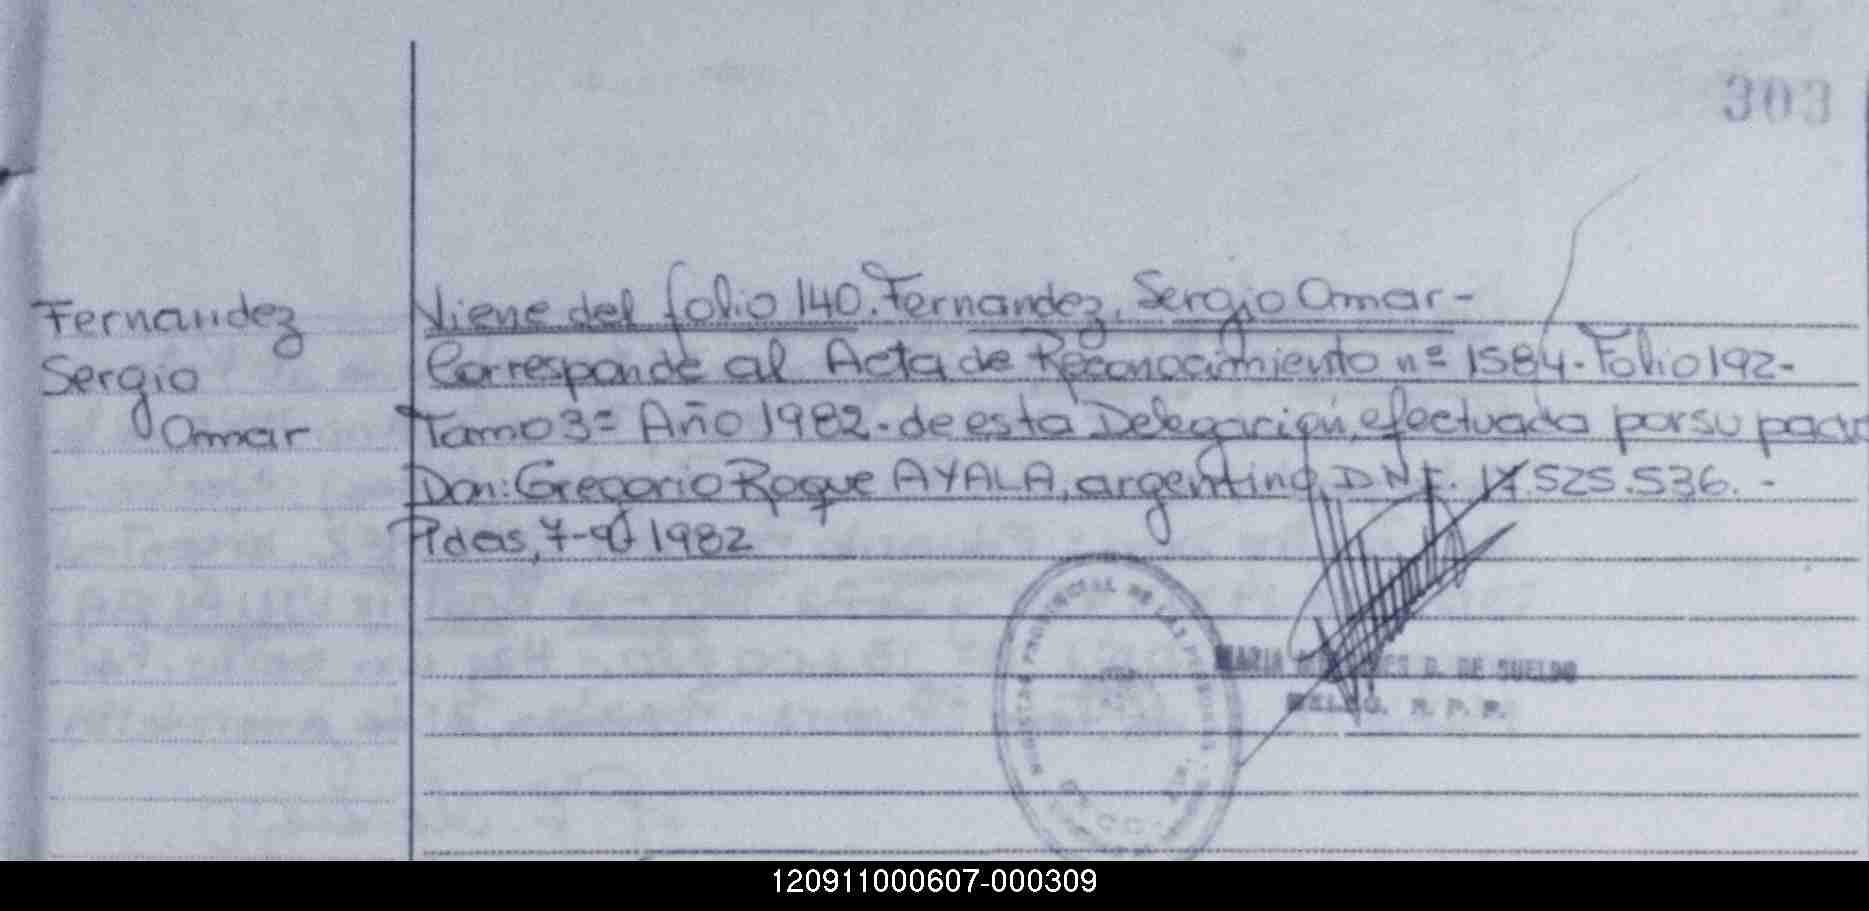 303
Fernandez
Sergio
Omar
Viene del folio 140. Fernandez, Sergio Omar-
Corresponde al Acta de Reconocimiento nº 1584. Folio 192-
Tomo 3º Año 1982. de esta Delegación, efectuada por su padre
Don: Gregorio Roque AYALA, argentino, D N I. 17.525.536. -
Pdas, 7-9-1982
MARIA D. DE SUELDO
R. P. P.
120911000607-000309